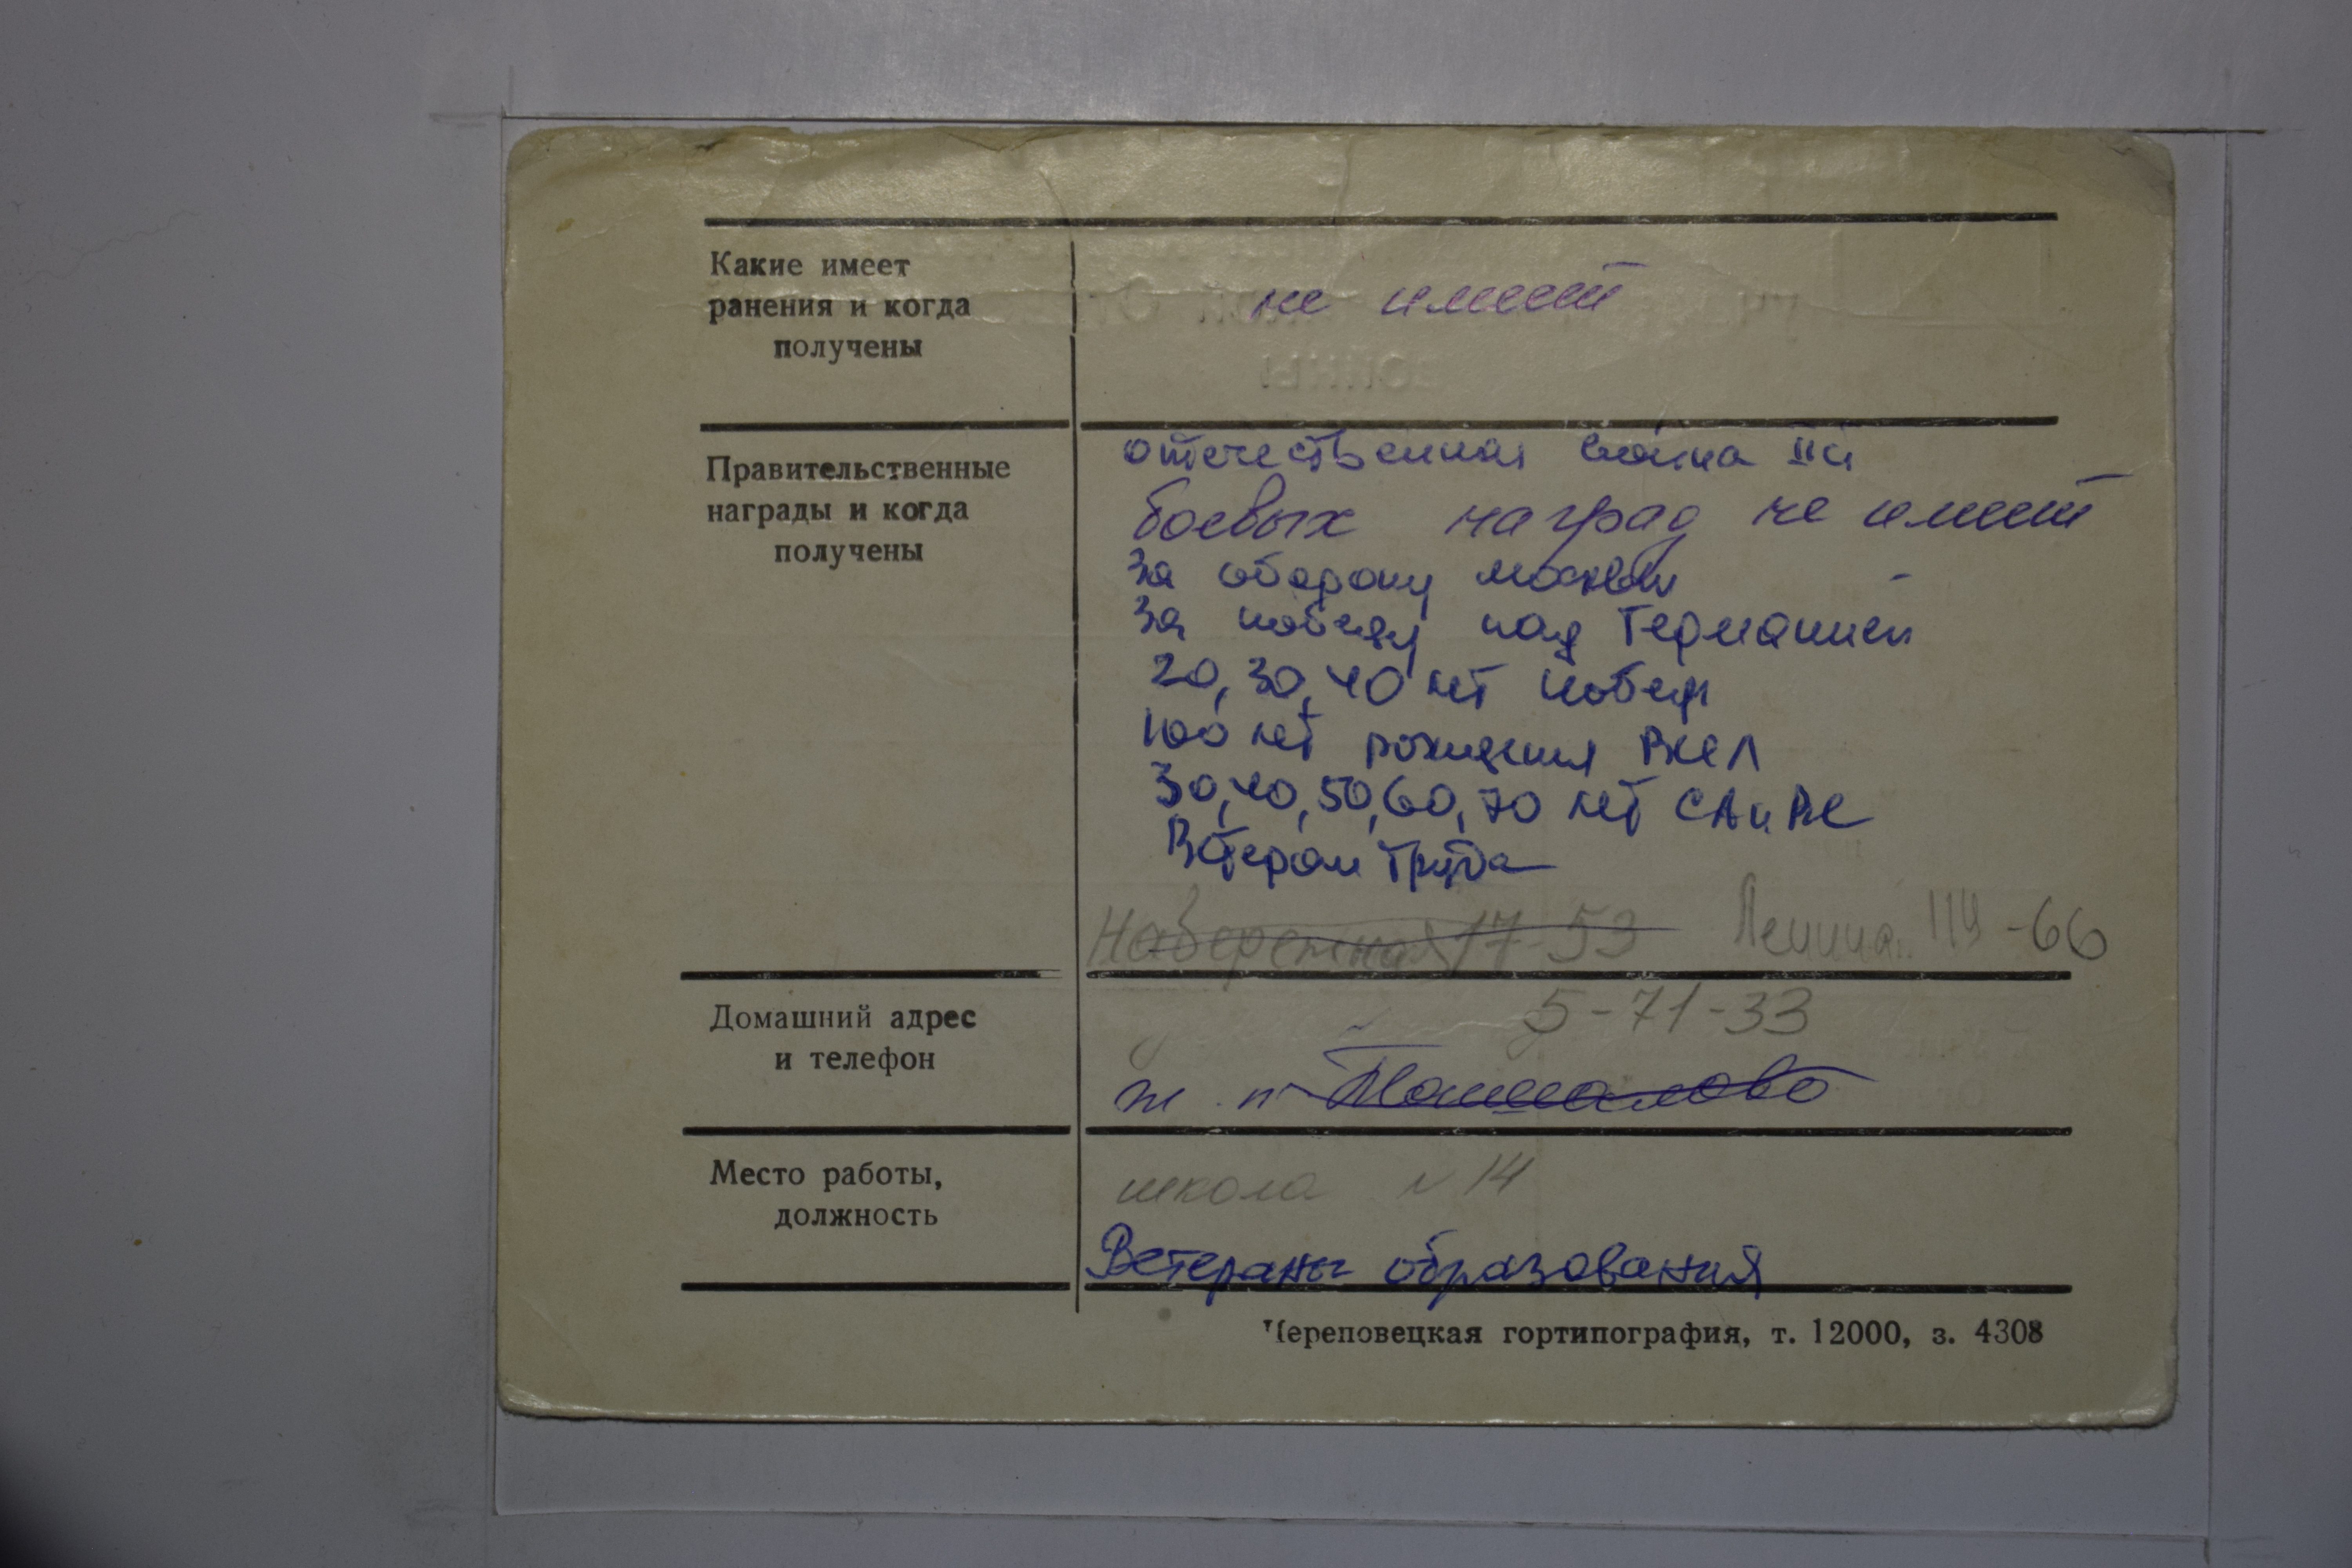 Какие имеет
ранения и когда
получены
не имеет
Правительственные
награды и когда
получены
отечественная война II ст
боевых наград не имеет
за оборону москвы
за победу над Германией
20, 30, 40 лет победы
100 лет рождения ВИЛ
30, 40, 50, 60, 70 лет СА и ВС
Ветеран Труда
Набережная 17-53 Ленина 114-66
Домашний адрес
и телефон
5-71-33
ж. п
Место работы,
должность
школа N 14
Ветераны образования
Череповецкая гортипография, т. 12000, з. 4308